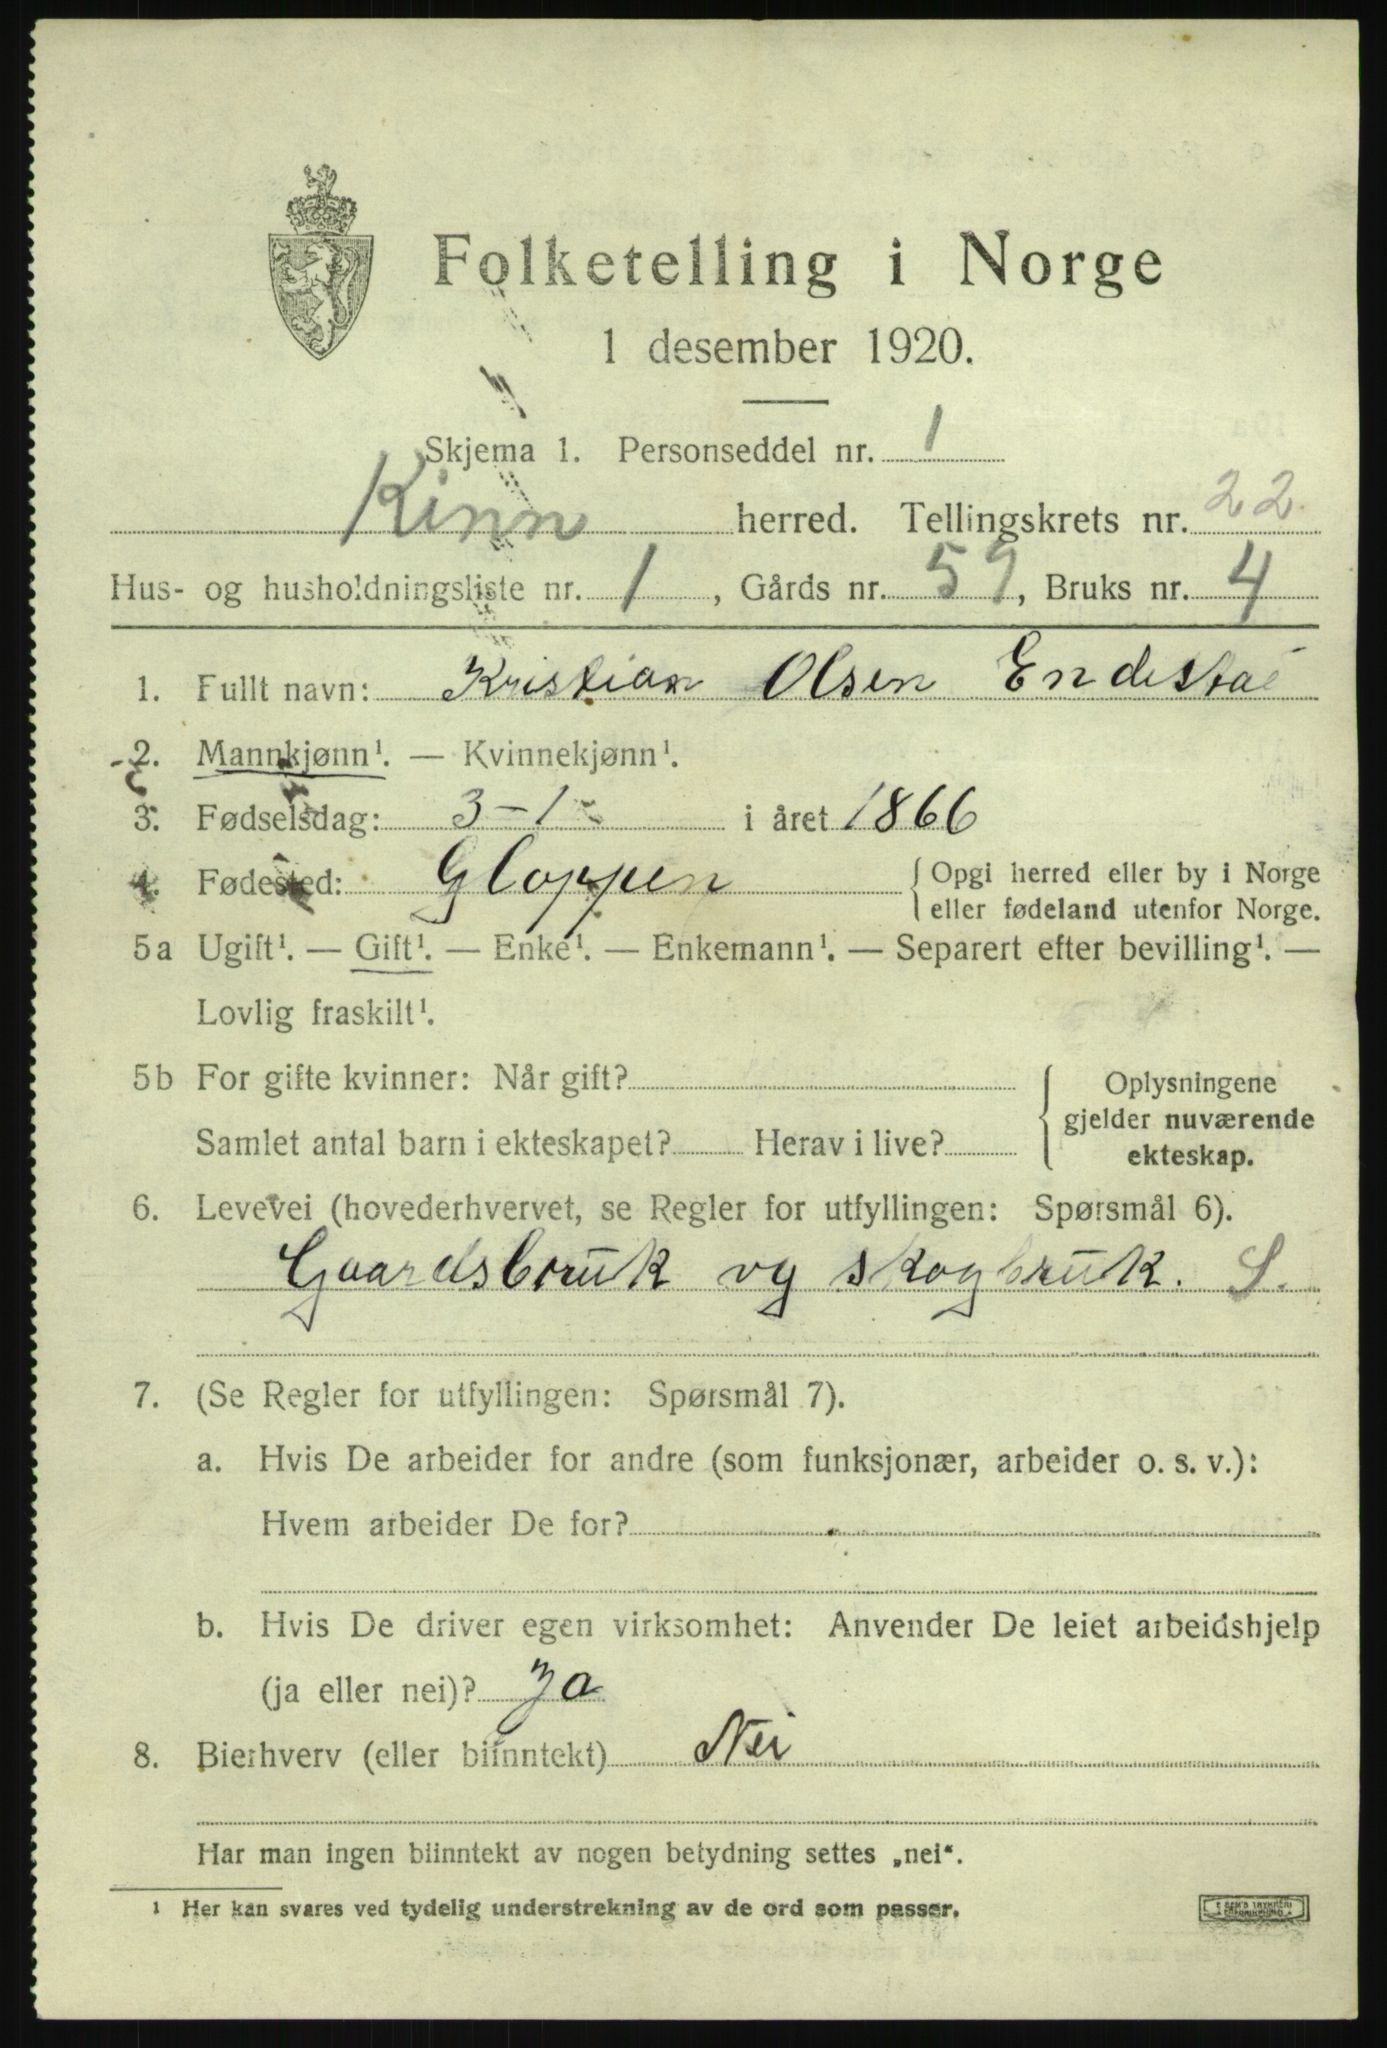 Folketelling i Norge
1 desember 1920.
Skjema 1. Personseddel nr. 1
Kinn herred. Tellingskrets nr. 22.
Hus- og husholdningsliste nr. 1, Gårds nr. 59, Bruks nr. 4
1. Fullt navn: Kristian Olsen Endestal
2. Mannkjønn¹. — Kvinnekjønn¹.
3. Fødselsdag: 3-1 i året 1866
4. Fødested: Gloppen { Opgi herred eller by i Norge
eller fødeland utenfor Norge.
5a Ugift¹. — Gift¹. — Enke¹. — Enkemann¹. — Separert efter bevilling¹. —
Lovlig fraskilt¹.
5b For gifte kvinner: Når gift? { Oplysningene
gjelder nuværende
Samlet antal barn i ekteskapet? Herav i live? ekteskap.
6. Levevei (hovederhvervet, se Regler for utfyllingen: Spørsmål 6).
Gaardsbruk og skogbruk. S.
7. (Se Regler for utfyllingen: Spørsmål 7).
a. Hvis De arbeider for andre (som funksjonær, arbeider o. s. v.):
Hvem arbeider De for?
b. Hvis De driver egen virksomhet: Anvender De leiet arbeidshjelp
(ja eller nei)? Ja
8. Bierhverv (eller biinntekt) Nei
Har man ingen biinntekt av nogen betydning settes „nei“.
¹ Her kan svares ved tydelig understrekning av de ord som passer.